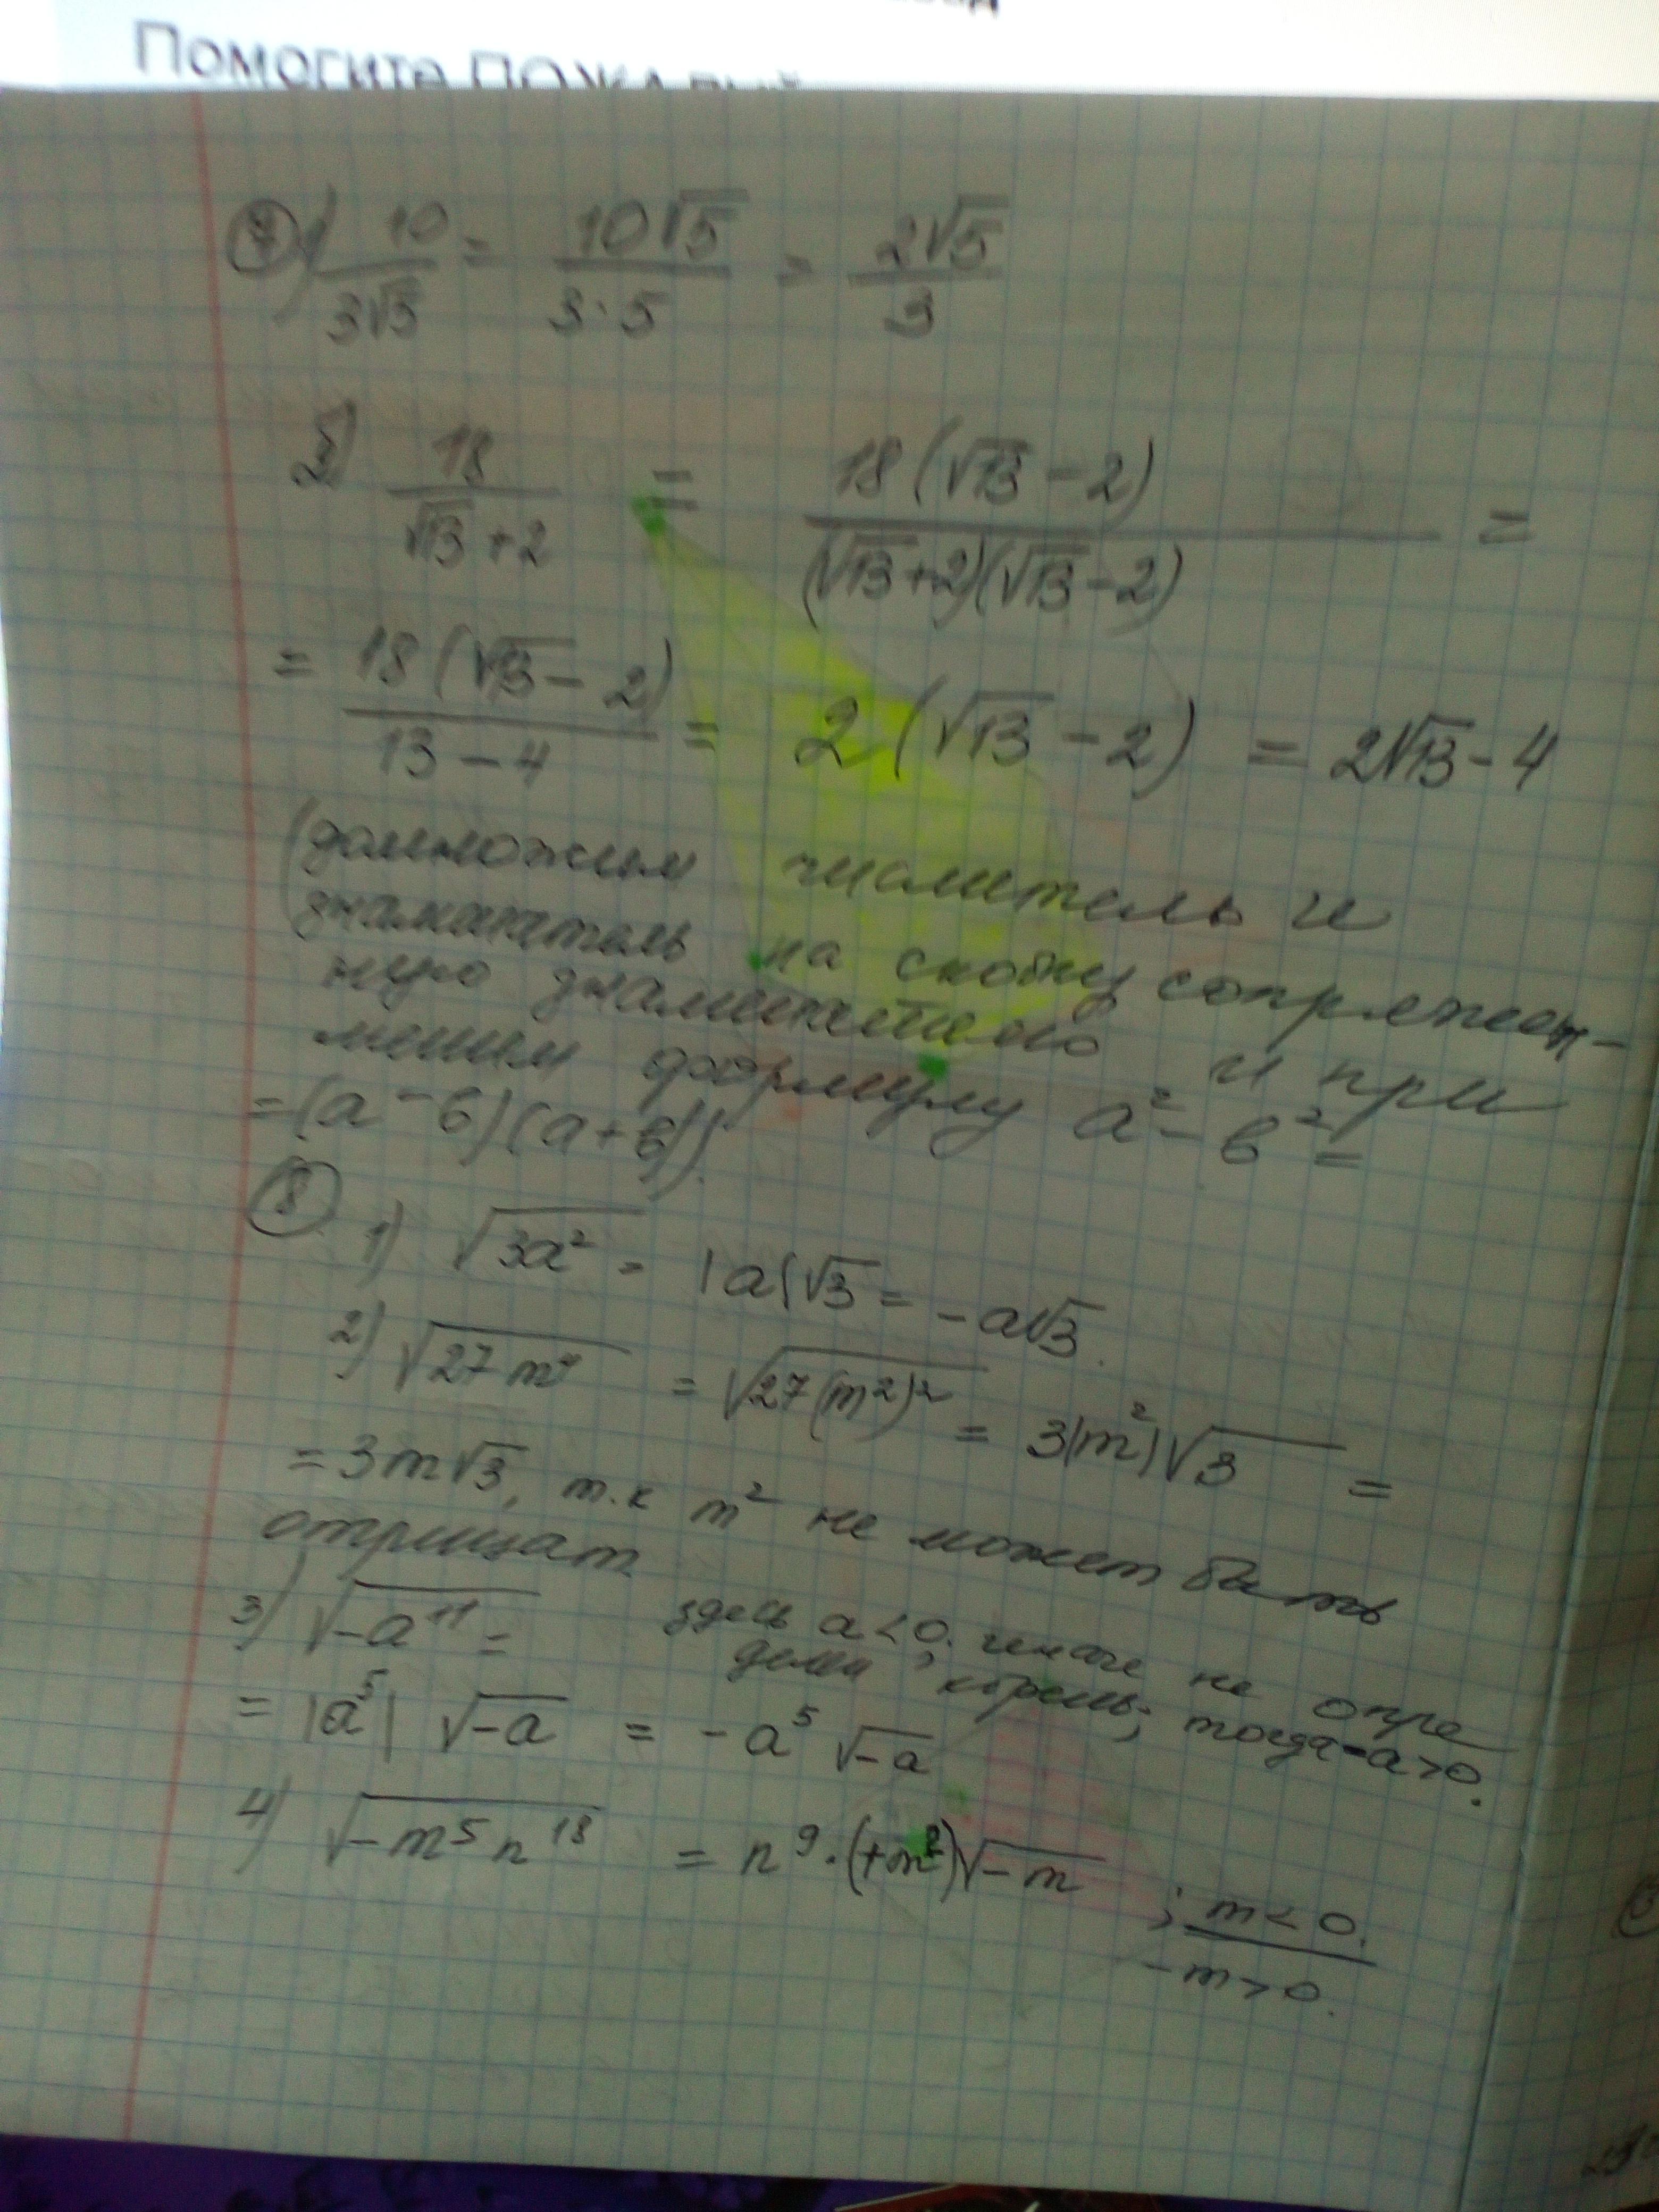 Помогите
⑦ 1) 10/(3√5) = 10√5/(3·5) = 2√5/3
2) 18/(√13+2) = 18(√13-2)/((√13+2)(√13-2)) =
= 18(√13-2)/(13-4) = 2(√13-2) = 2√13-4
(домножим числитель и
знаменатель на скобку сопряжен-
ную знаменателю и при
меним формулу a²-b²=
=(a-b)(a+b)).
⑧
1) √(3a²) = |a|√3 = -a√3.
2) √(27m⁴) = √(27(m²)²) = 3|m²|√3 =
=3m√3, т.к m² не может быть
отрицат
3) √(-a¹¹) = здесь a<0; иначе не опре
делен корень; тогда -a>0.
= |a⁵| √(-a) = -a⁵ √(-a)
4) √(-m⁵n¹⁸) = n⁹·(+m²)√(-m) ; m<0.
-m>0.